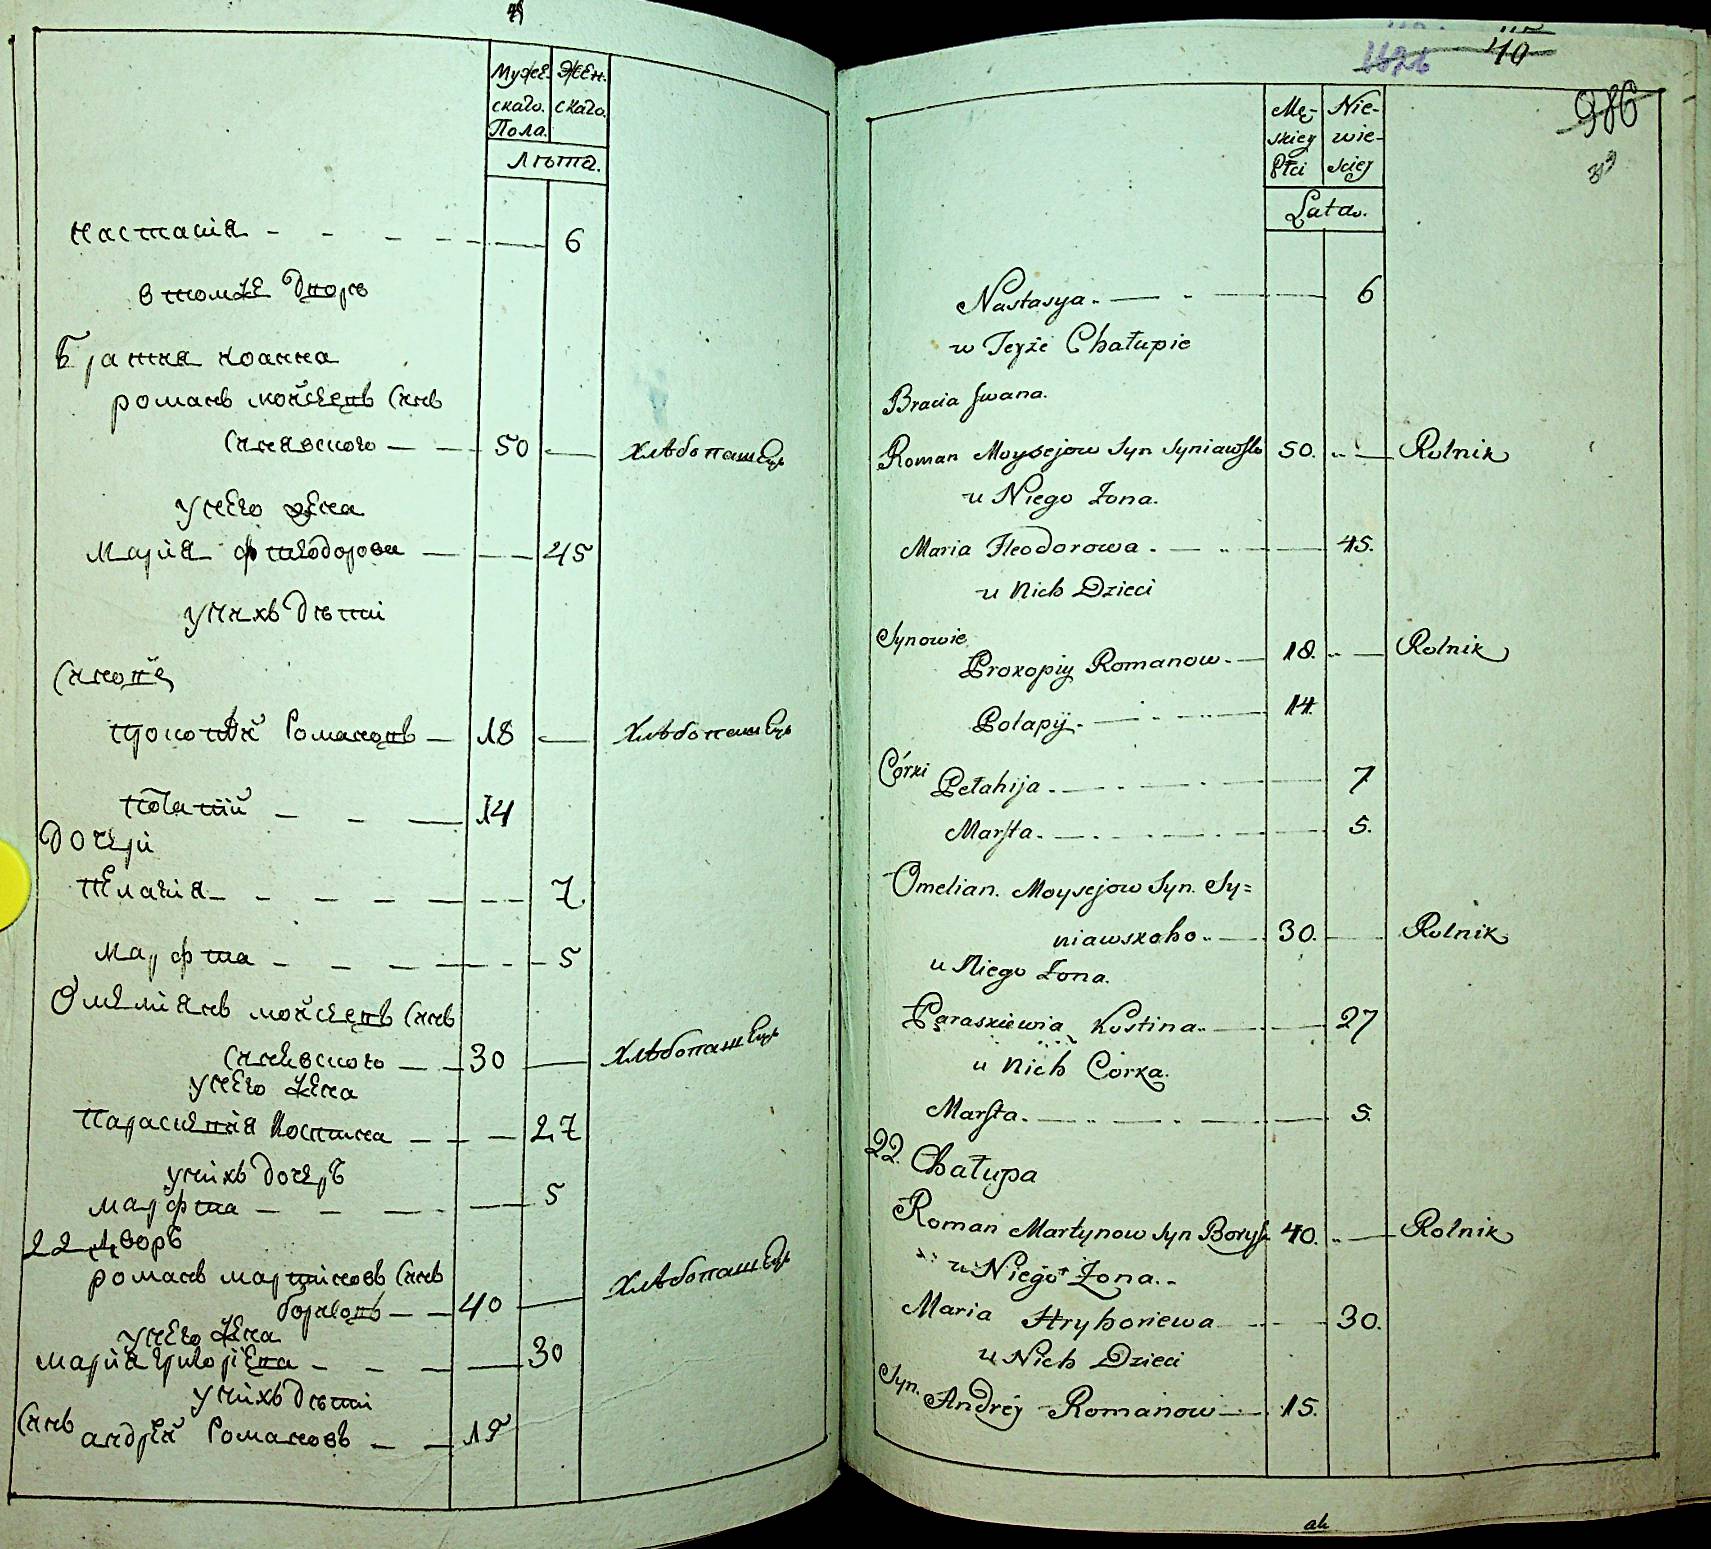 Муже Жен.
скаго. скаго.
Пола.
Лѣта.
настасія - - - - 6
в томже дворѣ
Братия иоанна
романъ мойсеевъ синъ
синявского - - 50 - Хлѣбопашецъ
унего жена
марія фтеодорова - 45
унихъ дѣти
синове
прокопій романовъ - 18 - Хлѣбопашецъ
потапій - - - 14
дочери
пелагія - - - - 7
марфта - - - - 5
Омеліянъ мойсеевъ синъ
синявского - - 30 - Хлѣбопашецъ
унего жена
параскевія костина - - - 27
унихъ дочеръ
марфта - - - 5
22 дворъ
романъ мартиновъ синъ
борисовъ - - 40 - Хлѣбопашецъ
унего жена
марія григоріева - - - 30
унихъ дѣти
синъ андрей романовъ - - 15
40
986
Mę- Nie-
skiey wie-
płci skiej
Lata.
Nastasya. - 6
w Teyże Chałupie
Bracia Jwana.
Roman Moysejow Syn Syniawsko 50. - Rolnik
u Niego Żona.
Maria Fteodorowa. - 45.
u Nich Dzieci
Synowie
Prokopiy Romanow. - 18. - Rolnik
Potapÿ. - 14.
Córki Pełahija. - 7
Marfta. - 5.
Omelian. Moysejow Syn. Sy=
niawskoho. - 30. - Rolnik
u Niego Żona.
Paraskiewia Kostina. - 27
u Nich Córka.
Marfta. - 5.
22. Chałupa
Roman Martynow Syn Borys 40. - Rolnik
u Niego Żona. -
Maria Hryhoriewa - 30.
u Nich Dzieci
Syn. Andréj Romanow - 15.